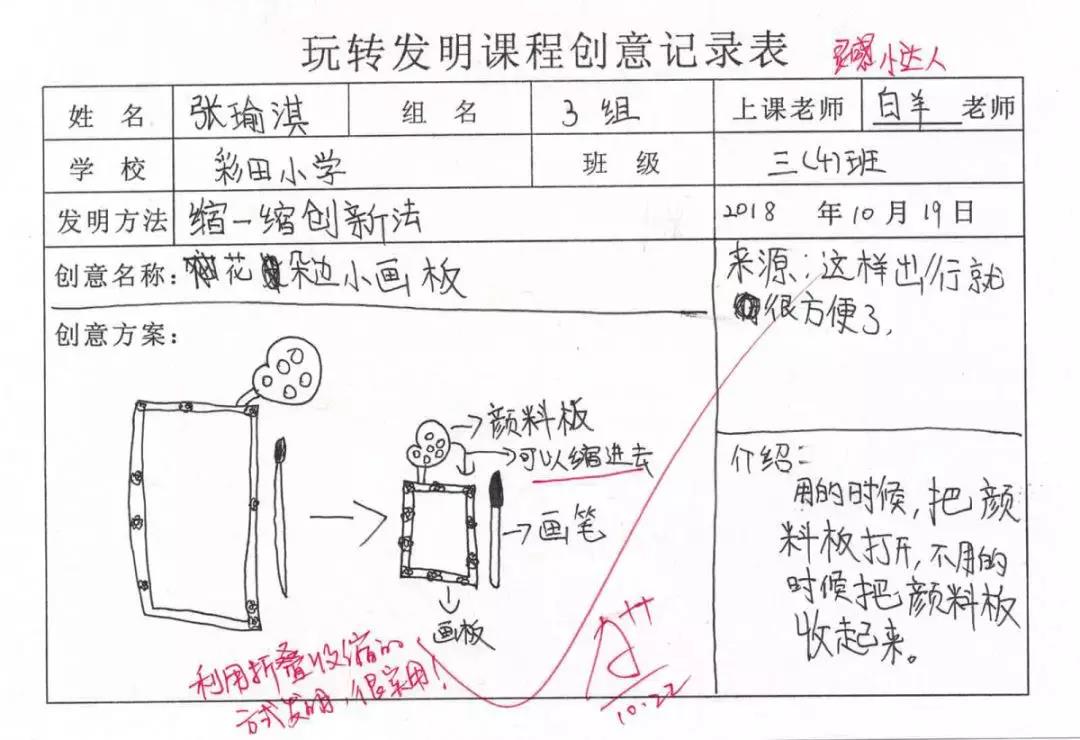 玩转发明课程创意记录表
小达人
姓名 张瑜淇 组名 3组 上课老师 白羊 老师
学校 彩田小学 班级 三(4)班
发明方法 缩一缩创新法 2018 年10月19日
创意名称: 花朵边小画板
来源:这样出行就
很方便了.
创意方案:
颜料板
可以缩进去
画笔
画板
介绍:
用的时候,把颜
料板打开,不用的
时候把颜料板
收起来。
利用折叠收缩的
方式发明,很实用!
A++
10.22